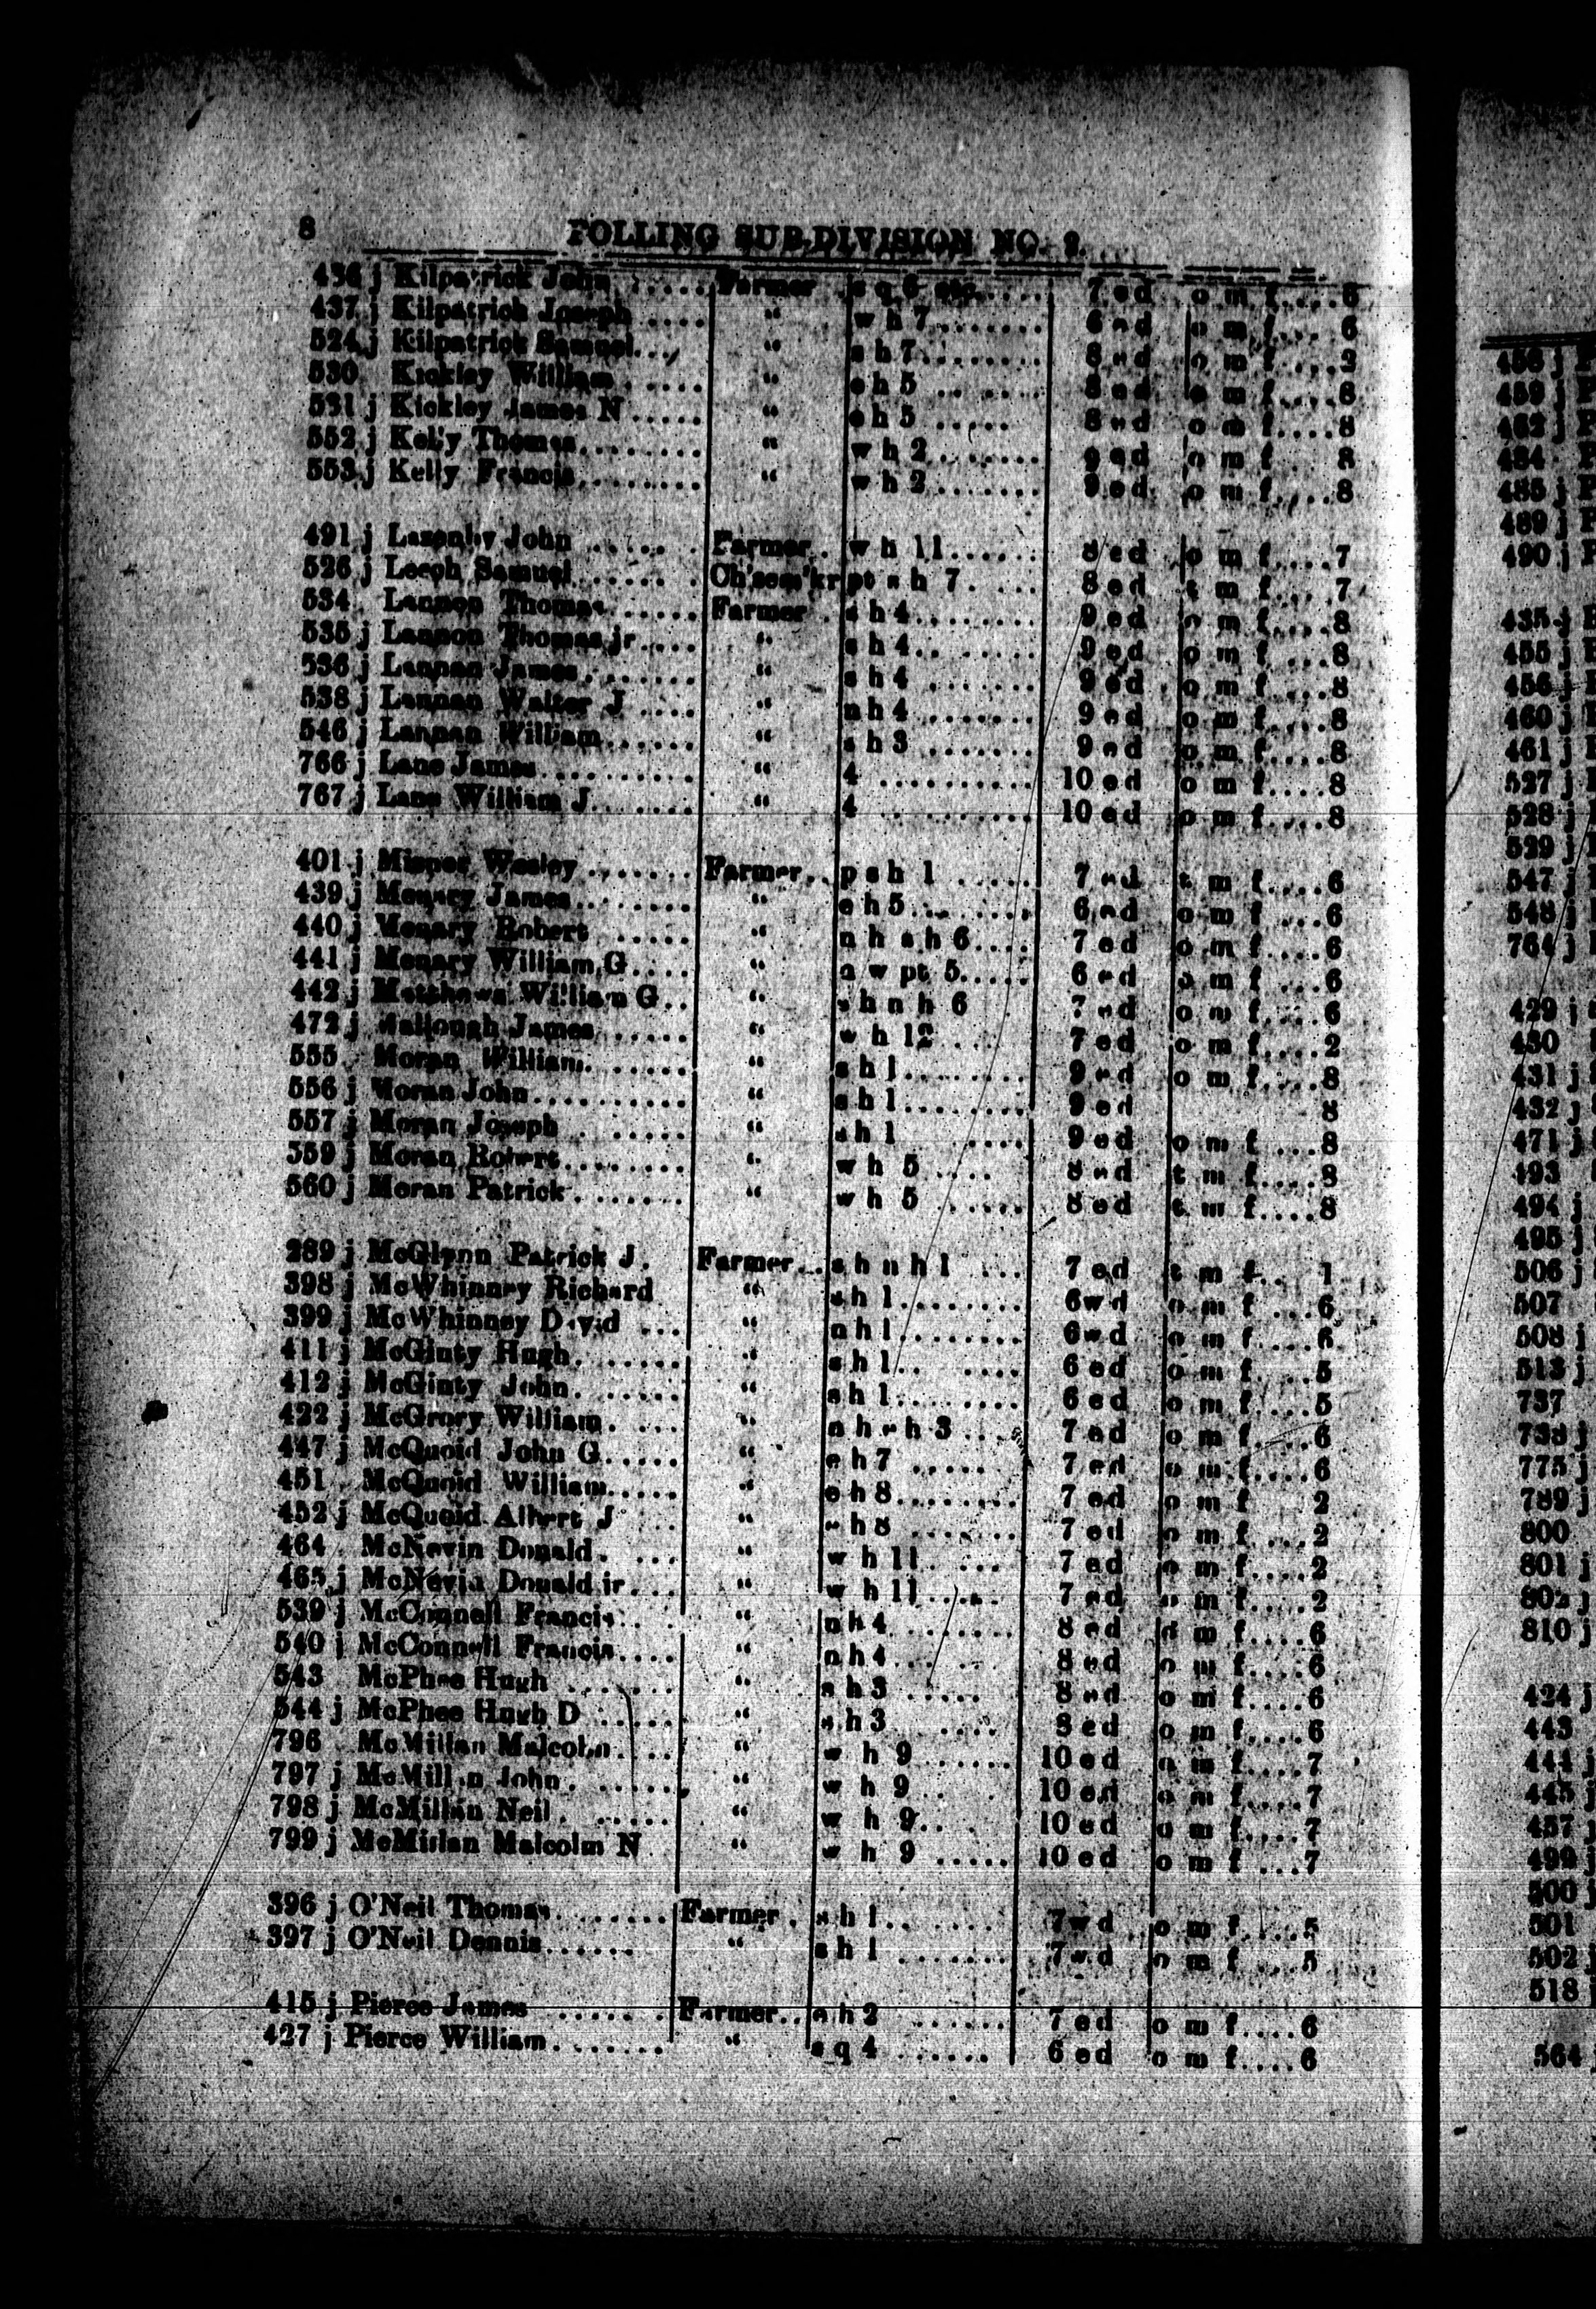 8 POLLING SUB-DIVISION NO. 2.
436 j Kilpatrick John ..... Farmer s q 6 etc..... 7 ed o m f....6
437 j Kilpatrick Joseph .... " w h 7....... 6 ed o m f.... 6
524 j Kilpatrick Samuel... " s h 7........ 8 ed o m f....2
530 Kickley William ..... " e h 5 ....... 8 ed o m f....8
531 j Kickley James N ..... " e h 5 ..... 8 ed o m f....8
552 j Kelly Thomas........ " w h 2....... 9 ed o m f... 8
553 j Kelly Francis........ " w h 2....... 9 ed o m f....8
491 j Lazenby John ...... Farmer.. w h 11...... 8 ed o m f....7
526 j Leech Samuel....... pt s h 7.... 8 ed t m f... 7
534 Lannon Thomas ..... Farmer . s h 4....... 9 ed o m f....8
535 j Lannon Thomas jr.... " s h 4....... 9 ed o m f....8
536 j Lannan James....... " s h 4 ....... 9 ed o m f....8
538 j Lannan Walter J .... " n h 4 ....... 9 ed o m f....8
546 j Lannan William...... " s h 3 ....... 9 ed o m f....8
766 j Lane James.......... " 4 .......... 10 ed o m f....8
767 j Lane William J....... " 4 .......... 10 ed o m f....8
401 j Wesley ....... Farmer.. p s h 1 ..... 7 ed t m f....6
439 j Menary James........ " e h 5....... 6 ed o m f ...6
440 j Menary Robert ..... " n h s h 6.... 7 ed o m f....6
441 j Menary William G.... " n w pt 5..... 6 ed o m f ...6
442 j Matthews William G.. " s h n h 6 7 ed o m f....6
472 j Mallough James...... " w h 12 .... 7 ed o m f....2
555 Moran William....... " s h 1........ 9 ed o m f....8
556 j Moran John.......... " s h 1........ 9 ed 8
557 j Moran Joseph ...... " s h 1 .... 9 ed o m f ...8
559 j Moran Robert........ " w h 5 .... 8 ed t m f....8
560 j Moran Patrick....... " w h 5 ..... 8 ed t m f....8
289 j McGlynn Patrick J. Farmer... s h n h 1 ... 7 ed t m f.. 1
398 j McWhinney Richard " s h 1........ 6 wd o m f ...6
399 j McWhinney David ... " n h 1........ 6 wd o m f....6
411 j McGinty Hugh....... " s h 1.. .... 6 ed o m f....5
412 j McGinty John. ..... " s h 1........ 6 ed o m f....5
422 j McGrory William. ... " n h s h 3.... 7 ed o m f....6
447 j McQuoid John G..... " e h 7 ..... 7 ed o m f....6
451 McQuoid William..... " e h 8........ 7 ed o m f 2
452 j McQuoid Albert J ... " e h 8 ....... 7 ed o m f....2
464 McNevin Donald. ... " w h 11.. ... 7 ed o m f....2
465 j McNevin Donald jr... " w h 11...... 7 ed o m f....2
539 j McConnell Francis... " n h 4........ 8 ed o m f....6
540 j McConnell Francis.... " n h 4... .. 8 ed o m f....6
543 McPhee Hugh ....... " s h 3 ..... 8 ed o m f....6
544 j McPhee Hugh D ..... " s h 3 .... 8 ed o m f....6
796 McMillan Malcolm.... " w h 9 ..... 10 ed o m f....7
797 j McMillan John....... " w h 9... . 10 ed o m f....7
798 j McMillan Neil. ...... " w h 9... . 10 ed o m f....7
799 j McMillan Malcolm N " w h 9 ..... 10 ed o m f ...7
396 j O'Neil Thomas....... Farmer. s h 1.. .... 7 wd o m f....5
397 j O'Neil Dennis...... " s h 1 ....... 7 wd o m f ...5
415 j Pierce James ...... Farmer.. s h 2 ...... 7 ed o m f....6
427 j Pierce William....... " s q 4 ...... 6 ed o m f....6
458 j
459 j
462 j
484
485 j
489 j
490 j
435 j
455 j
456 j
460 j
461 j
527 j
528 j
529 j
547 j
548 j
764 j
429 j
430
431 j
432 j
471 j
493
494 j
495 j
506 j
507
508 j
513 j
737
738 j
775 j
789 j
800
801 j
802 j
810 j
424 j
443
444 j
445 j
457 j
499 j
500
501
502 j
518 j
564 j